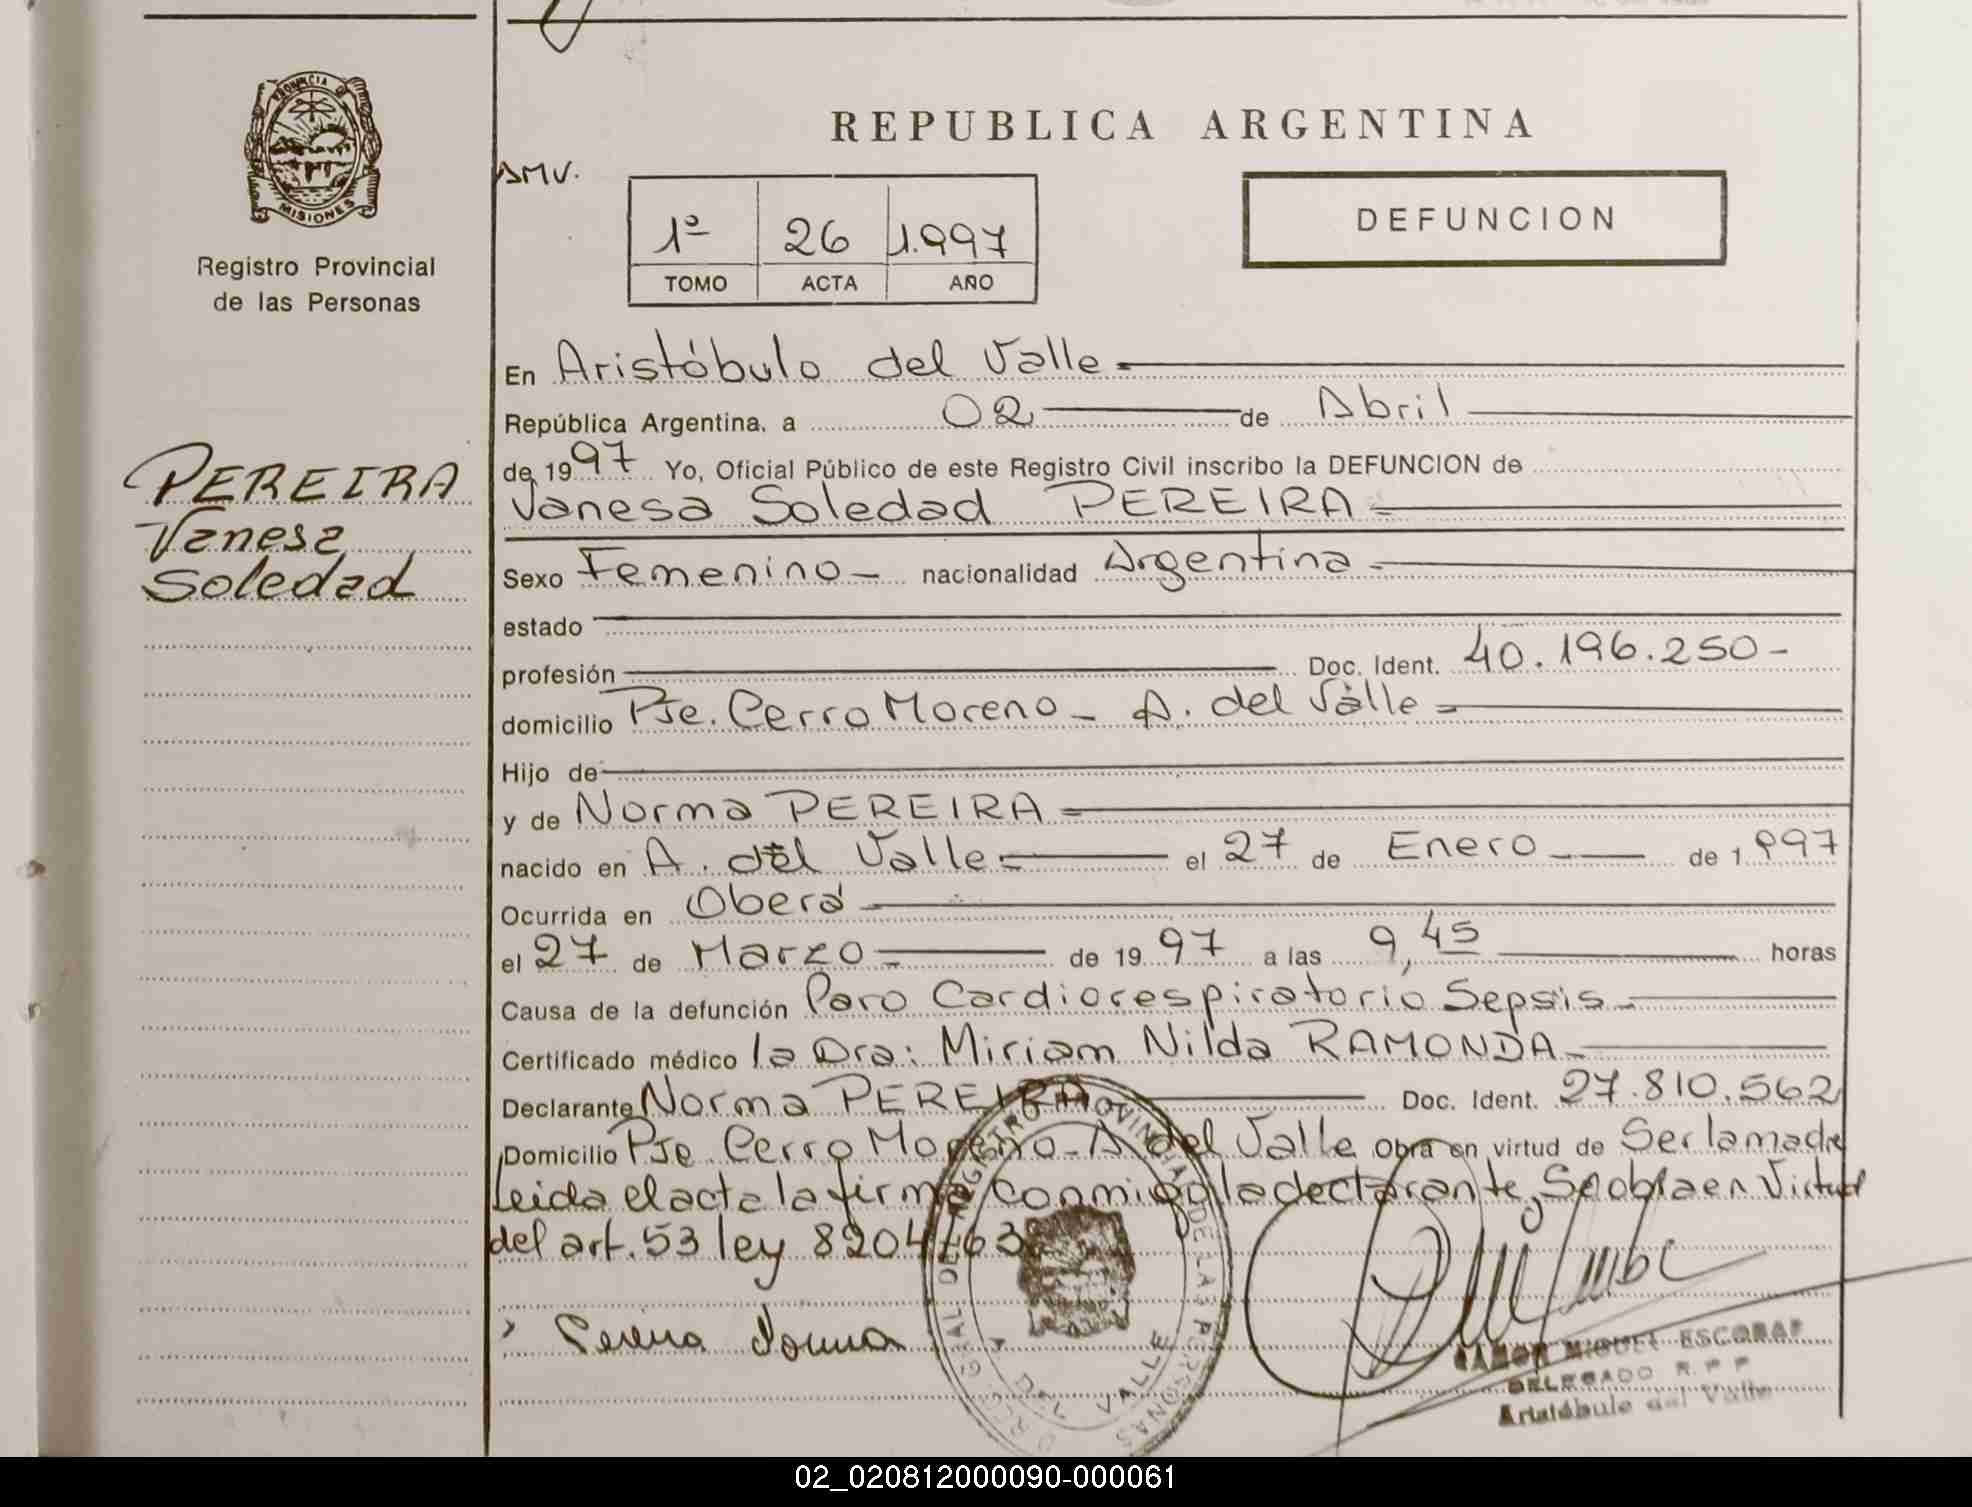 PROVINCIA D
MISIONES
Registro Provincial
de las Personas
PEREIRA
Vanesa
Soledad
REPUBLICA ARGENTINA
AMV.
1º 26 1.997
TOMO ACTA AÑO
DEFUNCION
En Aristóbulo del Valle
República Argentina, a 02 de Abril
de 1997 Yo, Oficial Público de este Registro Civil inscribo la DEFUNCION de
Vanesa Soledad PEREIRA
Sexo Femenino nacionalidad Argentina
estado
profesión Doc. Ident. 40.196.250-
domicilio Pje. Cerro Moreno - A. del Valle
Hijo de
y de Norma PEREIRA
nacido en A. del Valle el 27 de Enero de 1.997
Ocurrida en Oberá
el 27 de Marzo de 1997 a las 9,45 horas
Causa de la defunción Paro Cardiorespiratorio Sepsis
Certificado médico la Dra: Miriam Nilda RAMONDA
Declarante Norma PEREIRA Doc. Ident. 27.810.562
Domicilio Pje. Cerro Moreno - A del Valle Obra en virtud de Ser la madre
Leida el acta la firma conmigo la declarante, Se obra en Virtud
del art. 53 ley 8204/63
Pereira Norma
REGISTRO PROVINCIAL DE LAS PERSONAS
A. DEL VALLE
RAMON MIGUEL ESCOBAR
DELEGADO R. P. P.
Aristóbulo del Valle
02_020812000090-000061